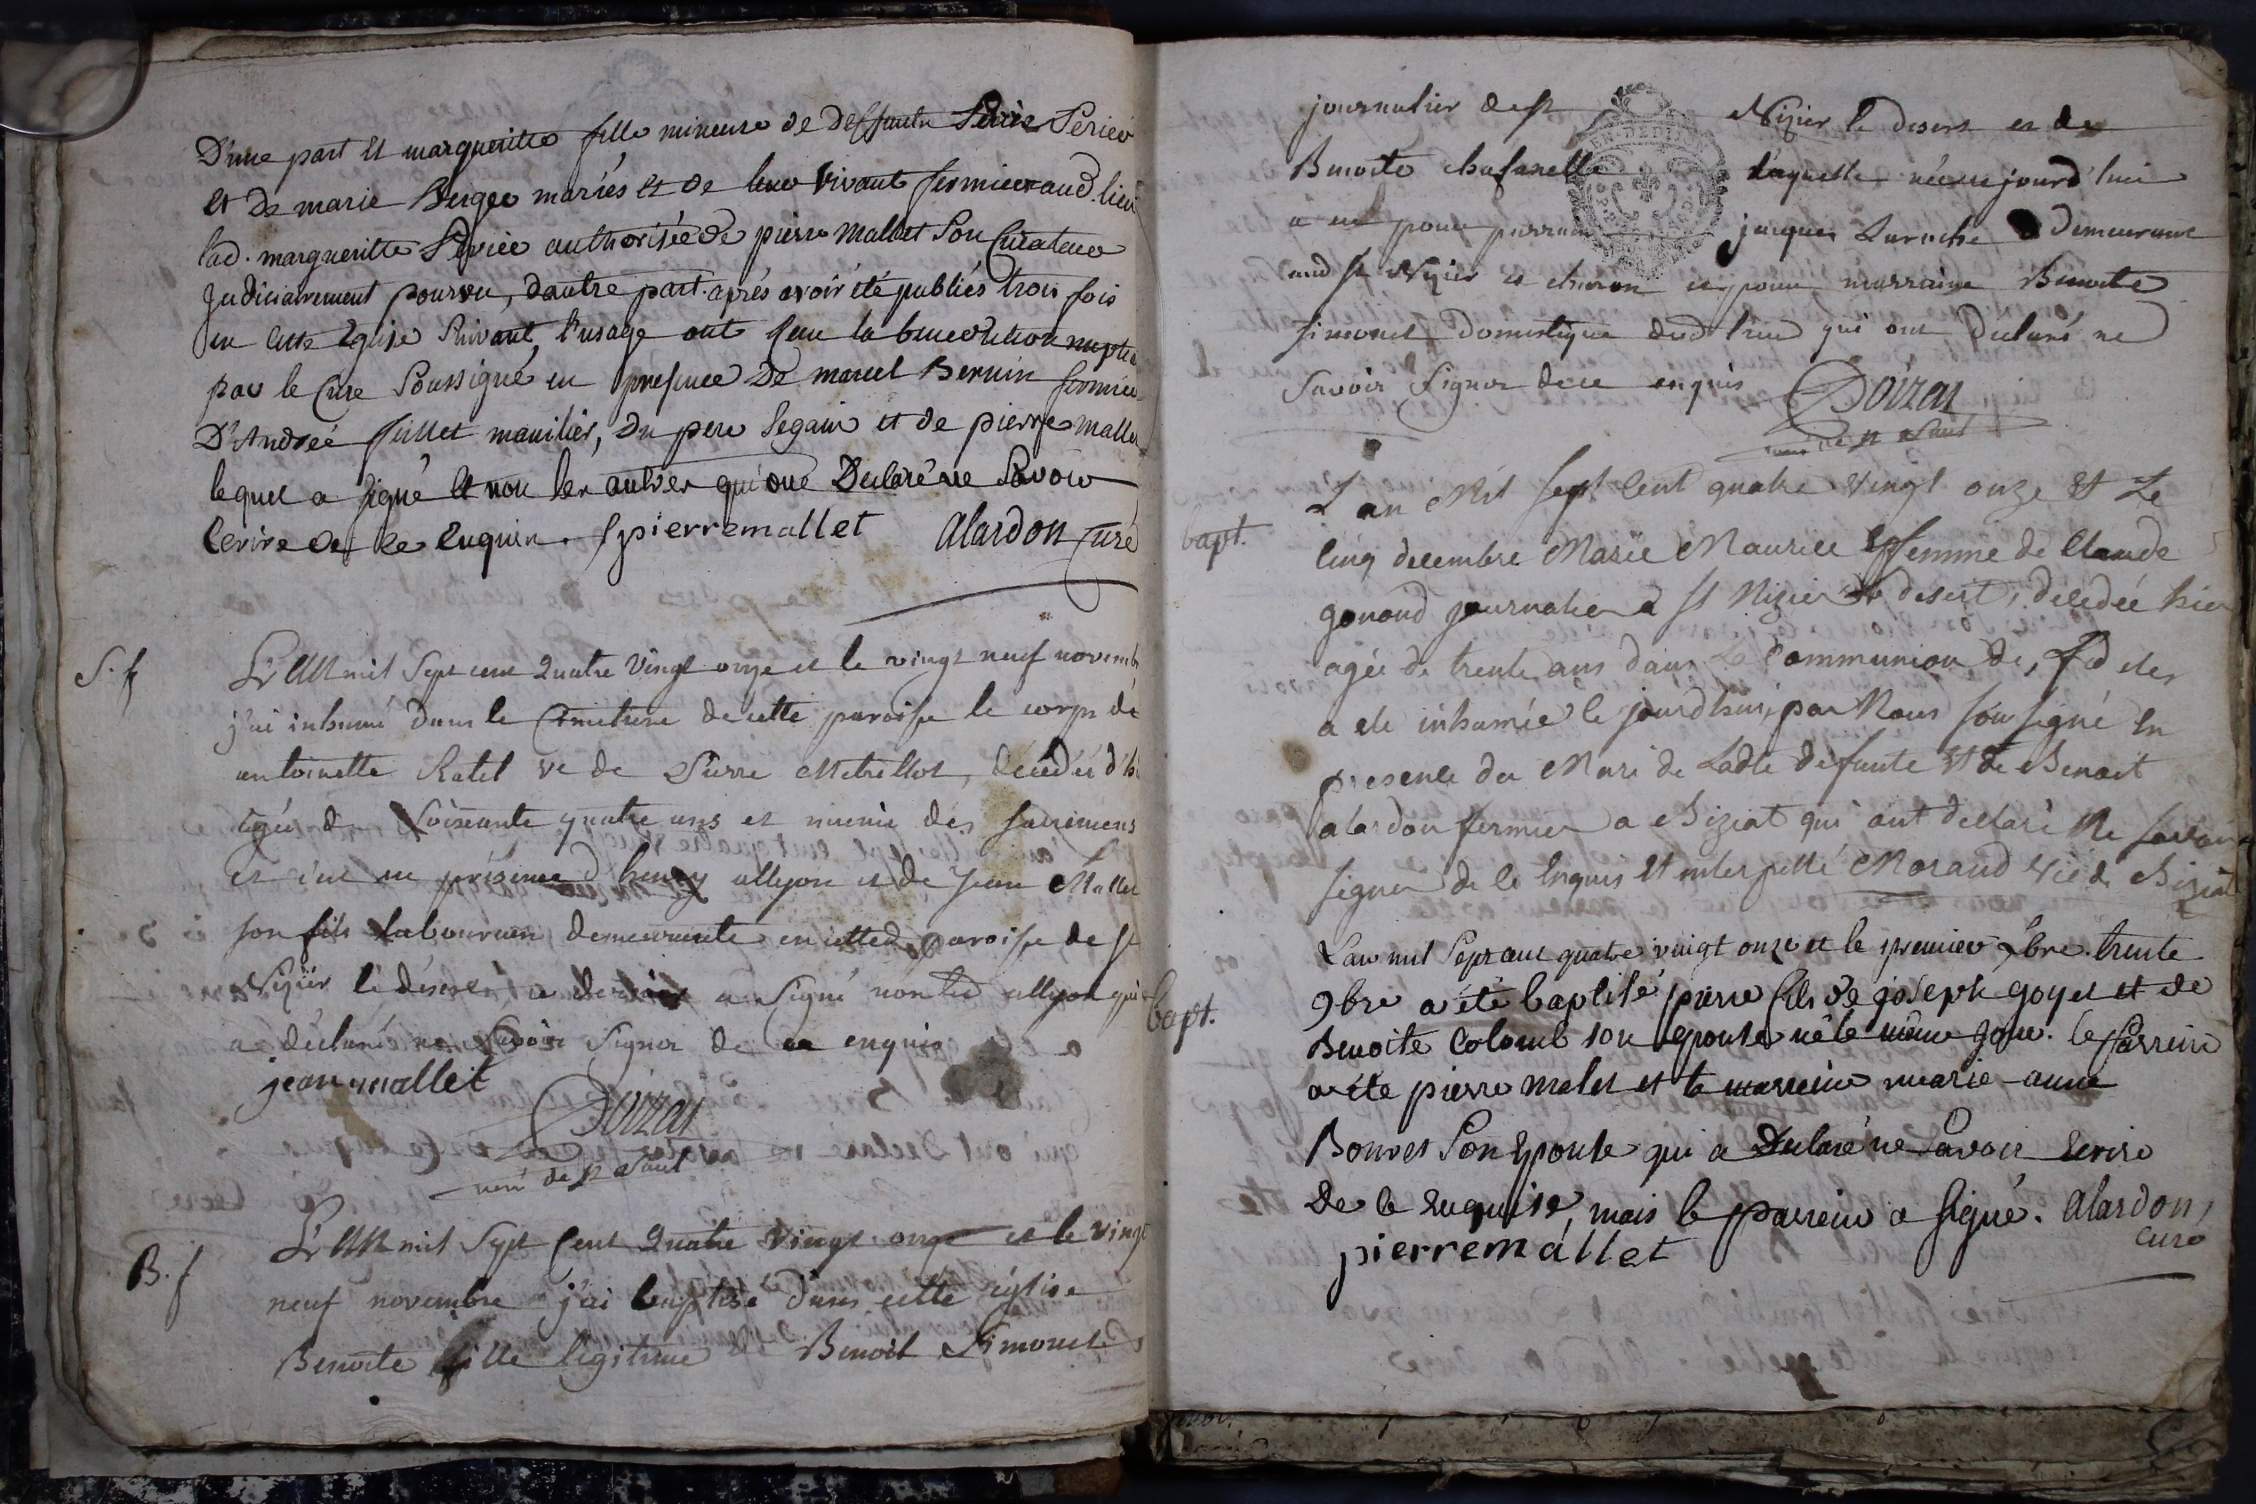 D'une part et margueritte fille mineure de deffunts Perier
et de marie Berger mariés et de leur vivant fermier aud. lieu
lad. margueritte authorisée de pierre mallet Son Curateur
Judiciairement pourvu, dautre part. aprés avoir été publiés trois fois
en cette Eglise Suivant l'usage ont reçu la benediction
par le Curé Soussigné en presence de marcel Bernin fermier
D'André manilier, du pere Segain et de pierre mallet
lequel a Signé et non les autres qui ont Déclaré ne Savoir
Ecrire de ce enquis. pierre mallet alardon Curé
S. f
L'AN mil Sept cent Quatre Vingt onze et le vingt neuf novembre
j'ai inhumé dans le Cimetiere de cette paroisse le corps de
antoinette Ratel ve de Pierre décédée d'hi
agée de Soixante quatre ans et munie des sacremens
et ce en présence d'henry allyon et de Jean Mallet
son fils laboureurs demeurants en cette paroisse de st
Nizier le désert ce dernier a Signé non led allyon qui
a déclaré ne Savoir Signer de ce enquis
jean mallet
Doizat
curé de st Paul
B. f
L'AN mil Sept Cent Quatre Vingt onze et le vingt
neuf novembre j'ai baptisé dans cette église
Benoite fille legitime de Benoit Simonet
journalier de st Nizier le desert et de
Benoite laquelle née ce jourd'hui
a eu pour parrain jacques Laroche Demeurant
aud st Nizier et pour marraine Benoite
Simonet Domestique dud lieu qui ont Déclaré ne
Savoir Signer de ce enquis Doizat
curé de st Paul
bapt.
L'an Mil Sept Cent quatre Vingt onze Et Le
Cinq decembre Marie Maurice femme de Claude
gonond journalier a St Nizier le desert, décédée hier
agée de trente ans dans La Communion des fideles
a ete inhumée ce jourdhui par Nous soussigné En
presence du Mari de Ladte defunte Et de Benoit
alardon fermier a Biziat qui ont declaré Ne Savoir
signer de ce Enquis Et interpellé Morand Vic. de Biziat
bapt.
L'an mil Sept cent quatre vingt onze et le premier Xbre trente
9bre a été baptisé pierre fils de joseph goyet et de
Benoite Colomb son epouse né le même jour. le Parrein
a été pierre malet et la marreine marie-anne
Bouvet Son Epouse qui a Déclaré ne Savoir Ecrire
De ce Enquise, mais le parrein a Signé. alardon,
curé
pierre mallet